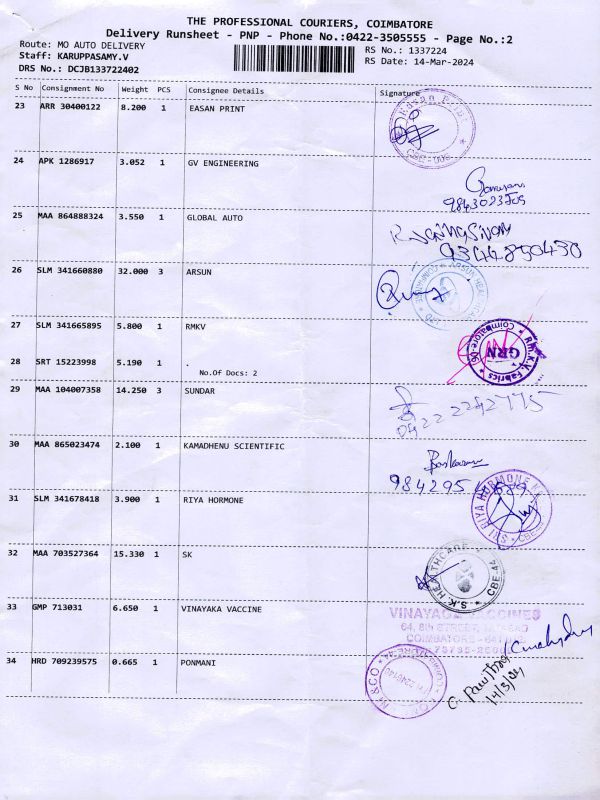 THE PROFESSIONAL COURIERS, COIMBATORE
Delivery Runsheet - PNP - Phone No.:0422-3505555 - Page No.:2
Route: MO AUTO DELIVERY RS No.: 1337224
Staff: KARUPPASAMY.V RS Date: 14-Mar-2024
DRS No.: DCJB133722402
S No Consignment No Weight PCS Consignee Details Signature
23 ARR 30400122 8.200 1 EASAN PRINT
24 APK 1286917 3.052 1 GV ENGINEERING
25 MAA 864888324 3.550 1 GLOBAL AUTO
9344890430
26 SLM 341660880 32.000 3 ARSUN
27 SLM 341665895 5.800 1 RMKV
Rm.K.V. Fabrics
Coimbatore
GRN
28 SRT 15223998 5.190 1 .
No.Of Docs: 2
29 MAA 104007358 14.250 3 SUNDAR
0422 2242775
30 MAA 865023474 2.100 1 KAMADHENU SCIENTIFIC
Baskaran
31 SLM 341678418 3.900 1 RIYA HORMONE
SRI RIYA HORMONE
32 MAA 703527364 15.330 1 SK
S.K. HEALTHCARE CBE-44
33 GMP 713031 6.650 1 VINAYAKA VACCINE
VINAYAGA VACCINES
COIMBATORE
34 HRD 709239575 0.665 1 PONMANI